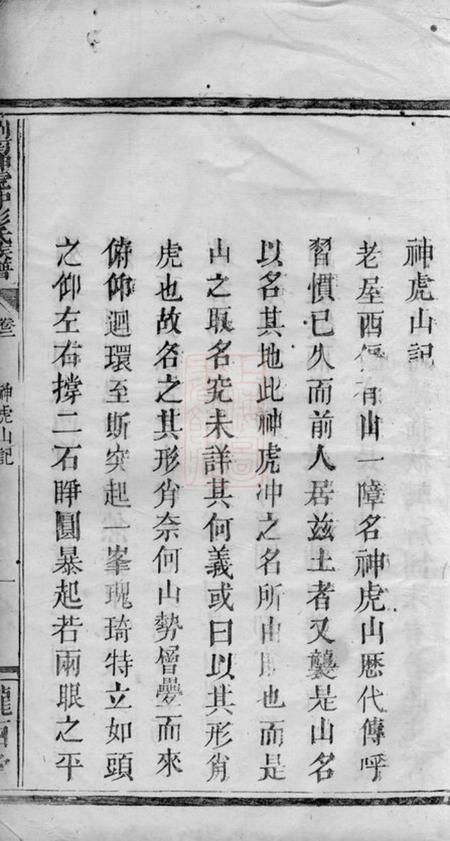 神虎山記
老屋西偏有山一障名神虎山歷代傳呼
習慣已久而前人居茲土者又襲是山名
以名其地此神虎冲之名所由昉也而是
山之取名究未詳其何義或曰以其形肖
虎也故名之其形肖奈何山勢層疊而來
俯仰迴環至斯突起一峯瑰琦特立如頭
之仰左右撐二石睜圓暴起若兩眼之平
神虎冲彭氏族譜
卷二
神虎山記
一